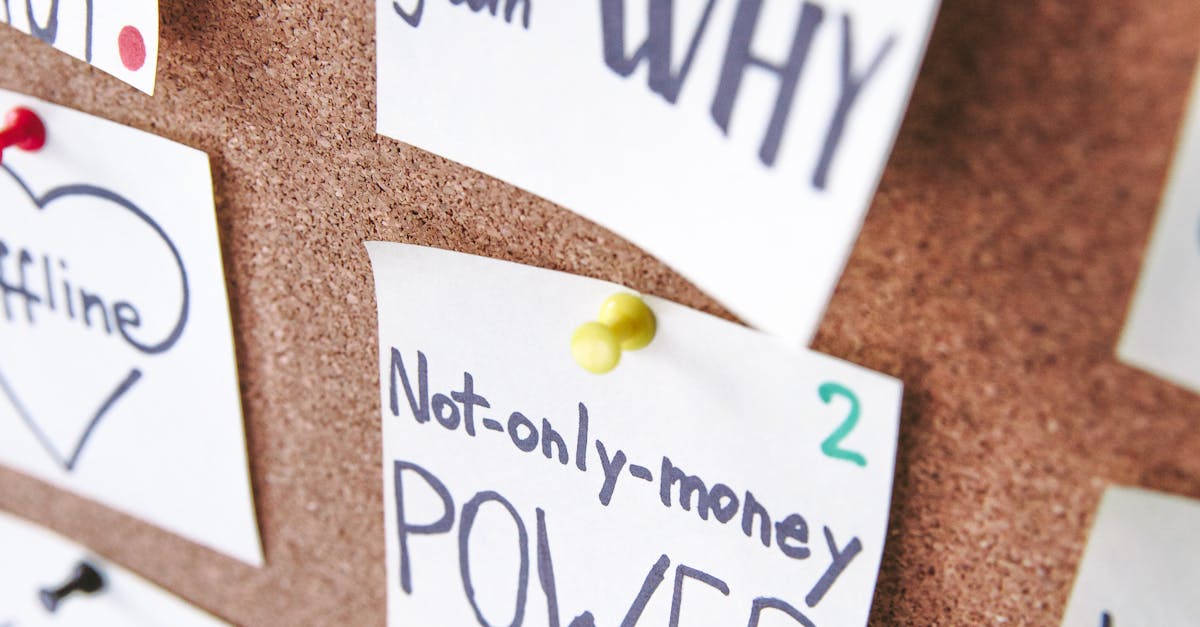 WHY
ffline
2
Not-only-money
POWER